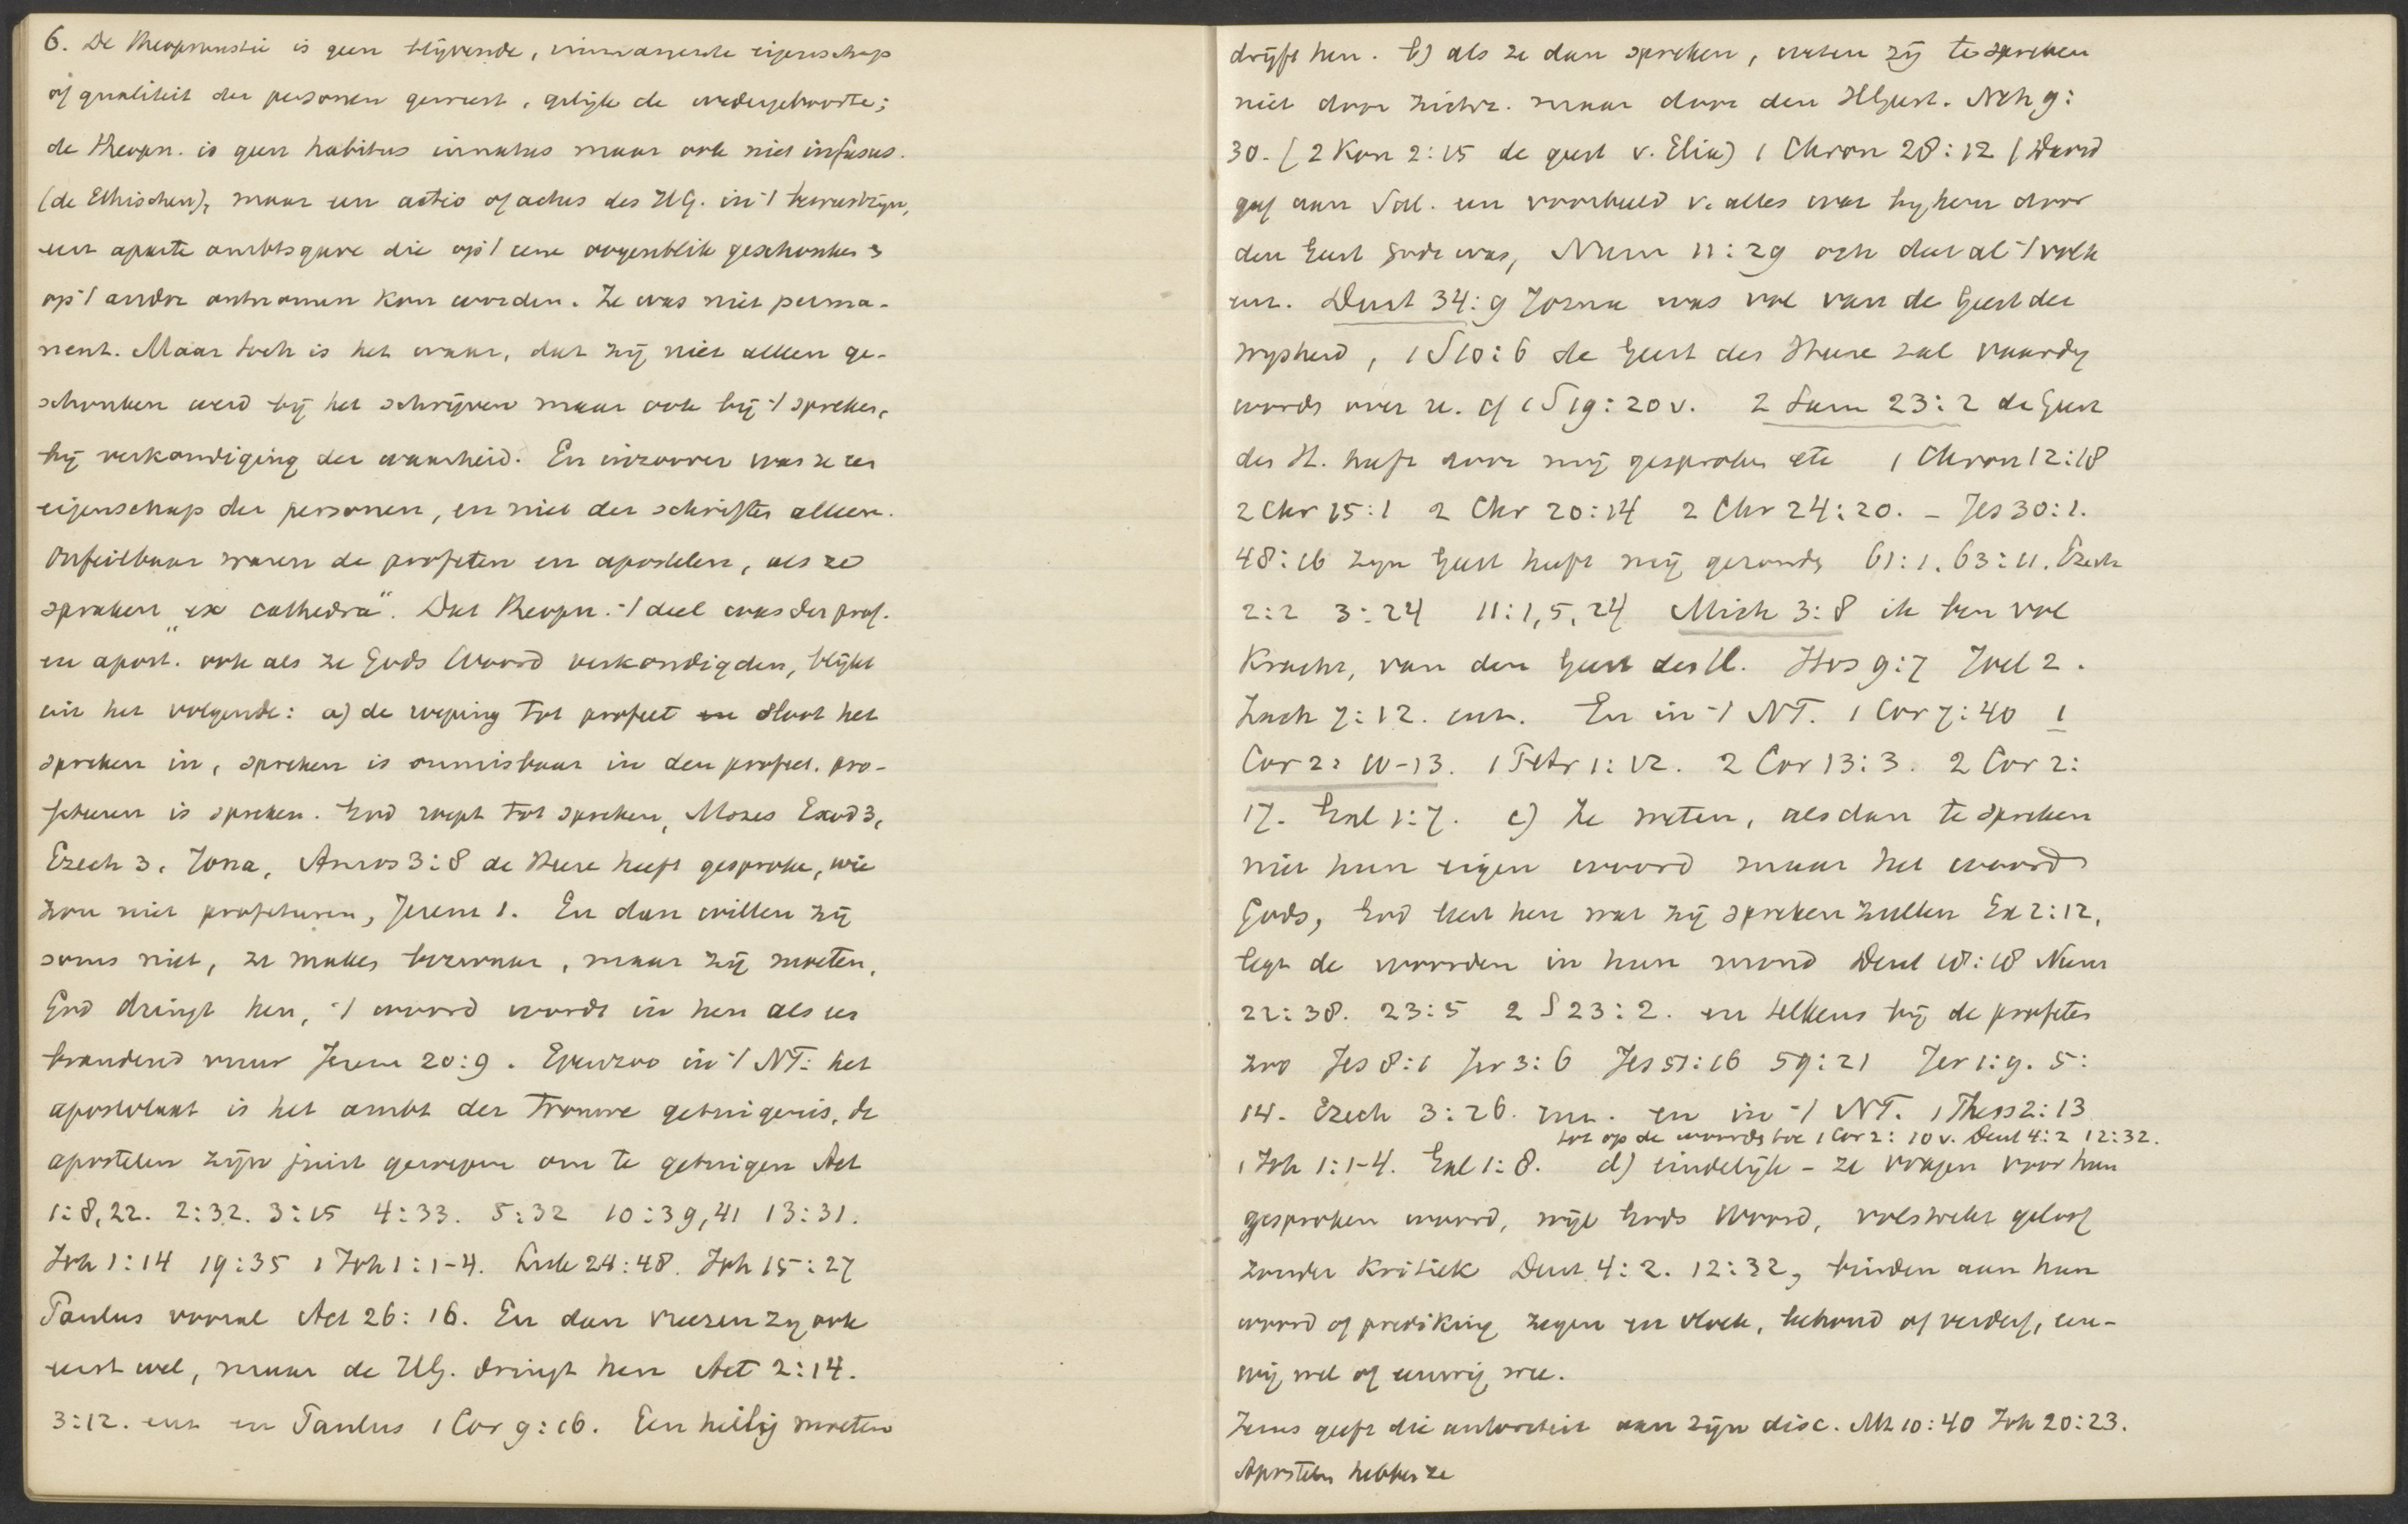 6. De theopneustie is geen blijvende, immanente eigenschap
of qualiteit der personen geweest, gelijk de wedergeboorte;
de theopn. is geen habitus innatus maar ook niet infusus.
(de Ethischen), maar een actio of actus des H.G. in 't bewustzijn,
een aparte ambtsgave die op 't eene oogenblik geschonken &
op 't andre ontnomen kon worden. Ze was niet perma-
nent. Maar toch is het waar, dat zij niet alleen ge-
schonken werd bij het schrijven maar ook bij 't spreken,
bij verkondiging der waarheid. En inzoover was ze een
eigenschap der personen, en niet der schriften alleen.
Onfeilbaar waren de profeten en apostelen, als ze
spraken „ex cathedra". Dat theopn. 't deel was der prof.
en apost. ook als ze Gods Woord verkondigden, blijkt
uit het volgende: a) de roeping tot profeet sloot het
spreken in, spreken is onmisbaar in den profeet. pro-
feteeren is spreken. God roept tot spreken, Mozes Exod 3,
Ezech 3. Jona, Amos 3:8 de Heere heeft gesproken, wie
zou niet profeteeren, Jerem 1. En dan willen zij
soms niet, ze maken bezwaar, maar zij moeten,
God dringt hen, 't woord wordt in hen als een
brandend vuur Jerem 20:9. Evenzoo in 't NT: het
apostolaat is het ambt der trouwe getuigenis, de
apostelen zijn juist geroepen om te getuigen Act
1:8,22. 2:32. 3:15 4:33. 5:32 10:39,41 13:31.
Joh 1:14 19:35 1 Joh 1:1-4. Luk 24:48. Joh 15:27
Paulus vooral Act 26:16. En dan vreezen zij ook
eerst wel, maar de H.G. dringt hen Act 2:14.
3:12. enz en Paulus 1 Cor 9:16. Een heilig moeten
drijft hen. b) als ze dan spreken, weten zij te spreken
niet door zichz. maar door den HGeest. Neh 9:
30. (2 Kon 2:15 de geest v. Elia) 1 Chron 28:12 (David
gaf aan Sal. een voorbeeld v. alles wat bij hem door
den Geest Gods was, Num 11:29 och dat al 't volk
enz. Deut 34:9 Jozua was vol van de Geest der
wijsheid, 1 S 10:6 de Geest des Heere zal vaardig
worden over u. cf 1 S 19:20 v. 2 Sam 23:2 de Geest
des H. heeft door mij gesproken etc 1 Chron 12:18
2 Chr 15:1 2 Chr 20:14 2 Chr 24:20. - Jes 30:1.
48:16 zijn Geest heeft mij gezonden 61:1. 63:11. Ezech
2:2 3:24 11:1,5,24 Mich 3:8 ik ben vol
Kracht, van den Geest des H. Hos 9:7 Joel 2.
Zach 7:12. enz. En in 't NT. 1 Cor 7:40 1
Cor 2:10-13. 1 Petr 1:12. 2 Cor 13:3. 2 Cor 2:
17. Gal 1:7. c) Ze weten, als dan te spreken
niet hun eigen woord maar het woord
Gods, God leert hen wat zij spreken zullen Ex 2:12,
legt de woorden in hun mond Deut 18:18 Num
22:38. 23:5 2 S 23:2. en telkens bij de profeten
zoo Jes 8:1 Jer 3:6 Jes 51:16 59:21 Jer 1:9. 5:
14. Ezech 3:26. enz. en in 't NT. 1 Thess 2:13
tot op de woorden toe 1 Cor 2:10 v. Deut 4:2 12:32.
1 Joh 1:1-4. Gal 1:8. d) eindelijk - ze vragen voor hun
gesproken woord, wijl Gods Woord, volstrekt geloof
zonder Kritiek Deut 4:2. 12:32, binden aan hun
woord of prediking zegen en vloek, behoud of verderf, eeu-
wig wel of eeuwig wee.
Jezus geeft die autoriteit aan zijn disc. Mt 10:40 Joh 20:23.
Apostelen hebben ze